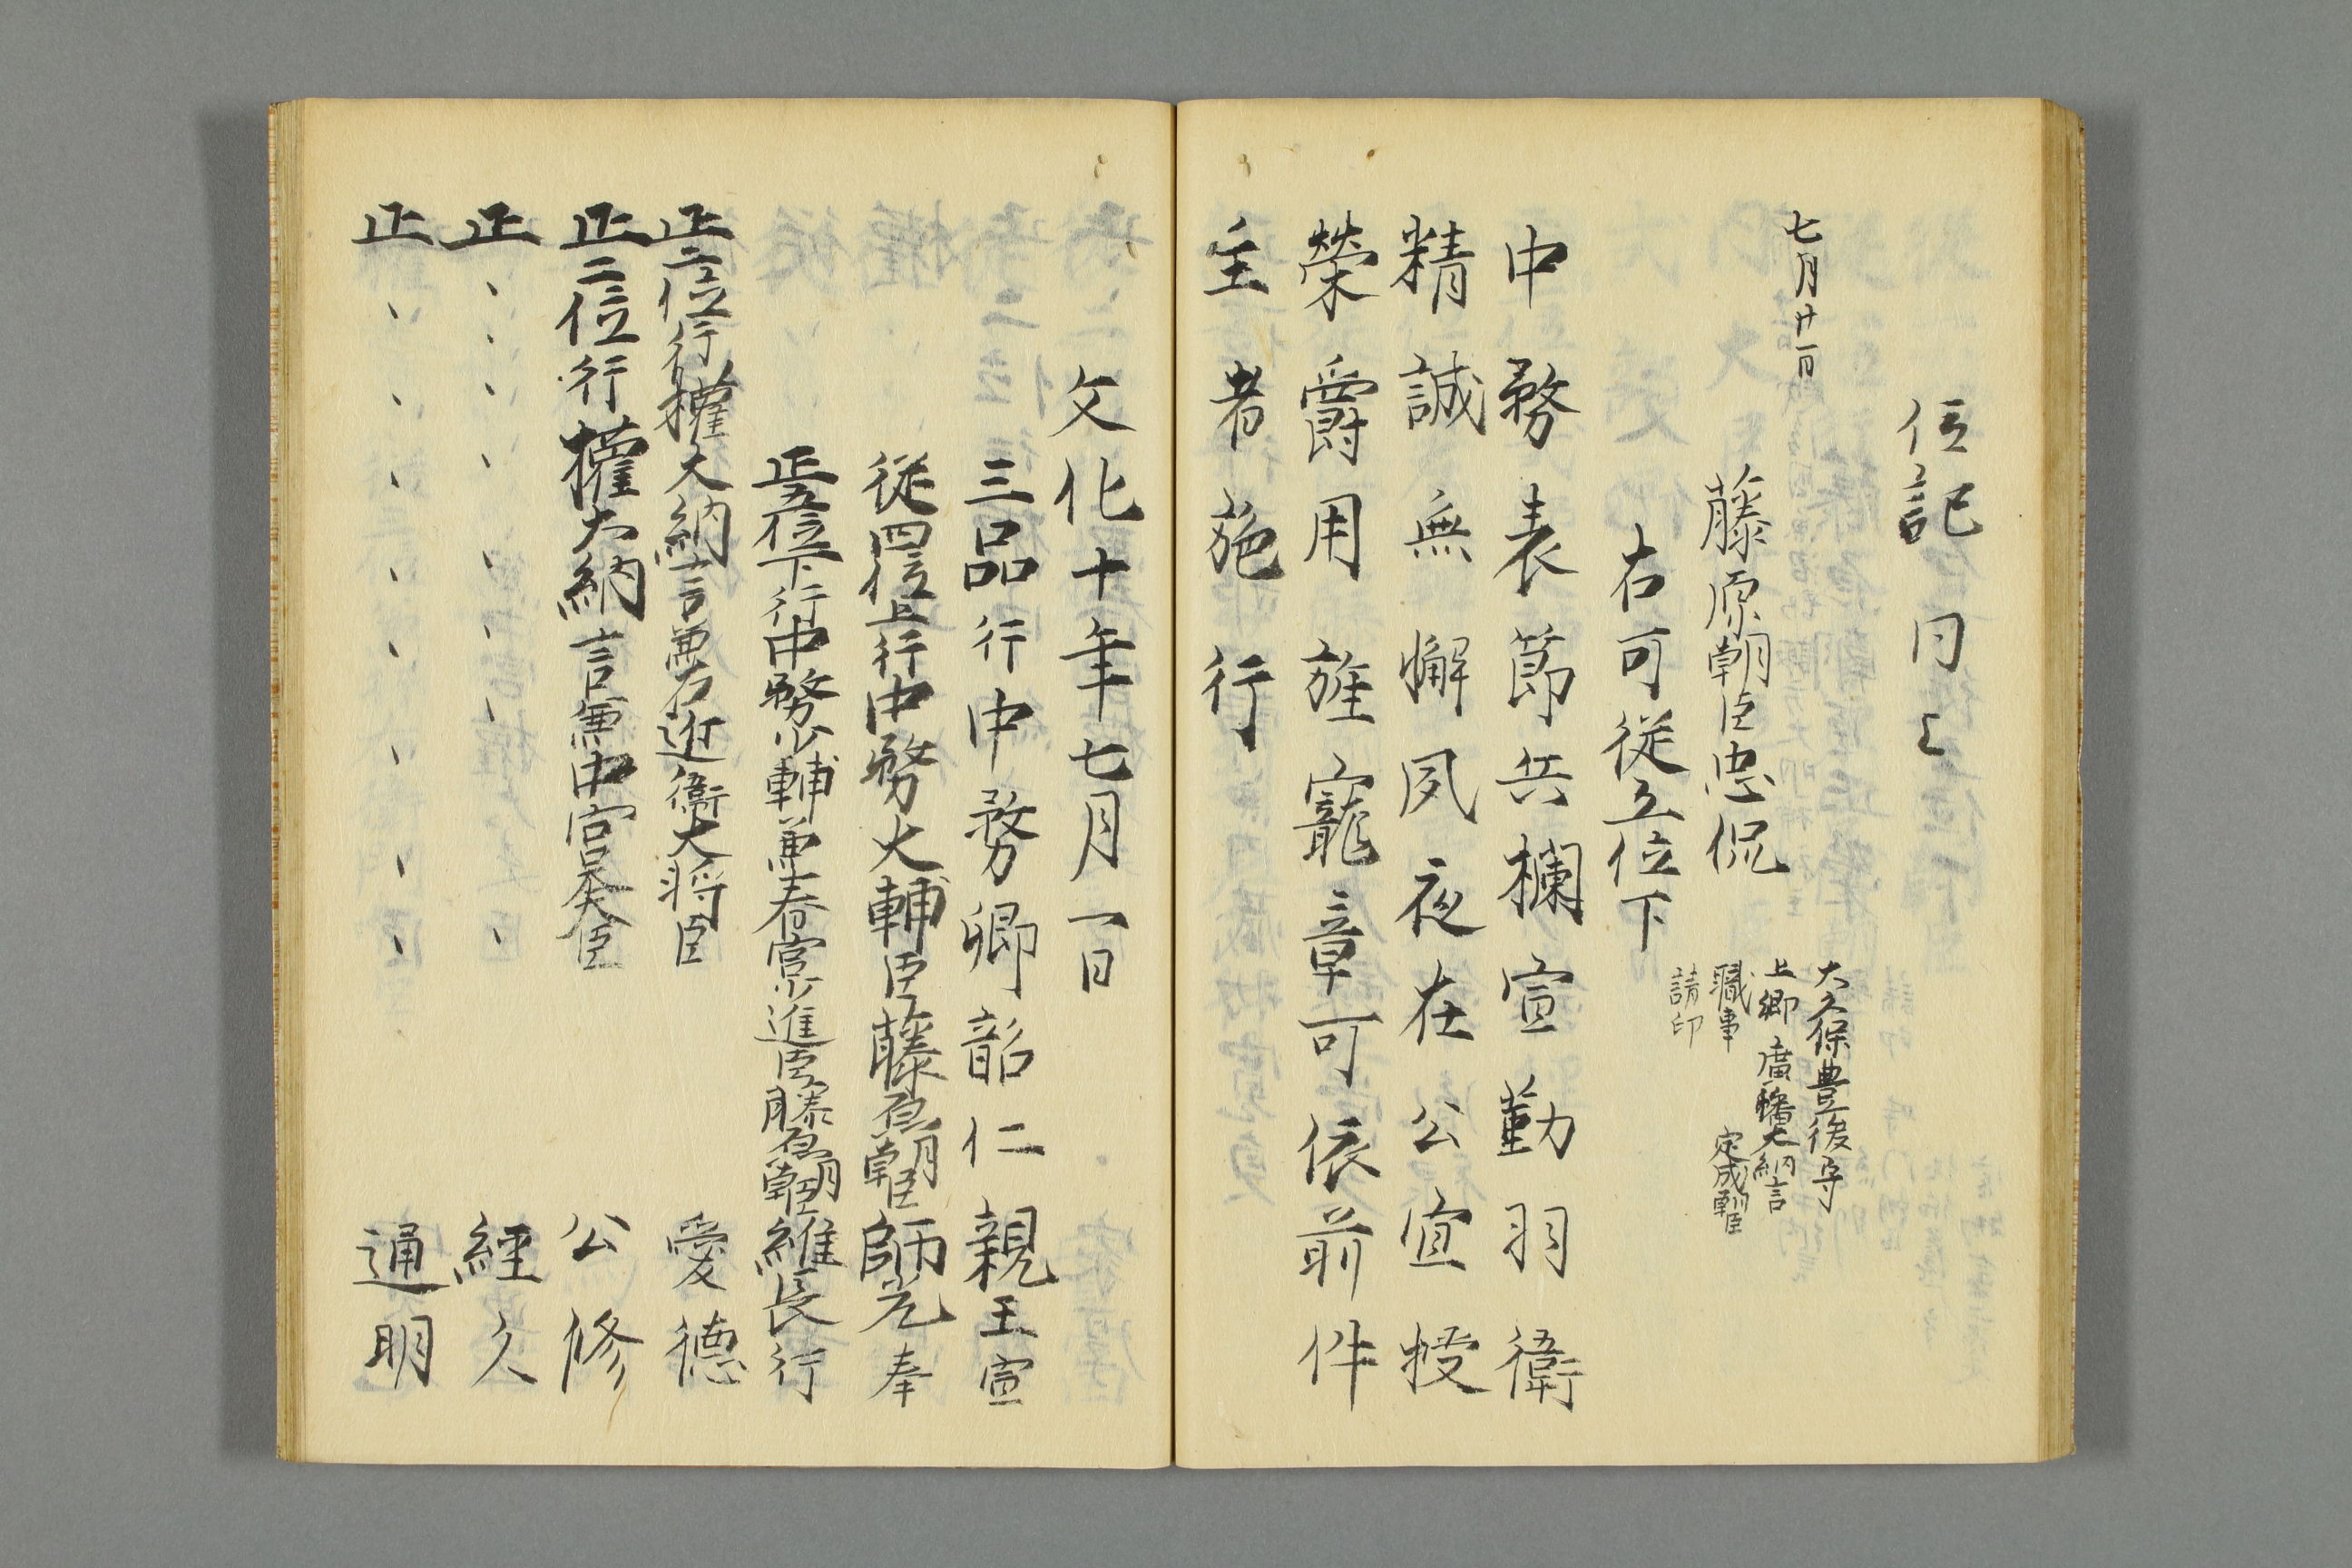 位記 同上
七月廿一日
大久保豊後守
上卿 廣幡大納言
職事 定成朝臣
請印
藤原朝臣忠侃
右可従五位下
中務表節兵欄宣勤羽衛
精誠無懈夙夜在公宜授
榮爵用旌寵章可依前件
主者施行
文化十年七月一日
三品行中務卿韶仁親王宣
従四位上行中務大輔臣藤原朝臣師光奉
正五位下行中務少輔兼春宮少進臣藤原朝臣維長行
正二位行權大納言兼右近衛大将臣 愛德
正二位行權大納言兼中宮大夫臣 公修
正、、、、、、、、 經久
正、、、、、、、、 通明